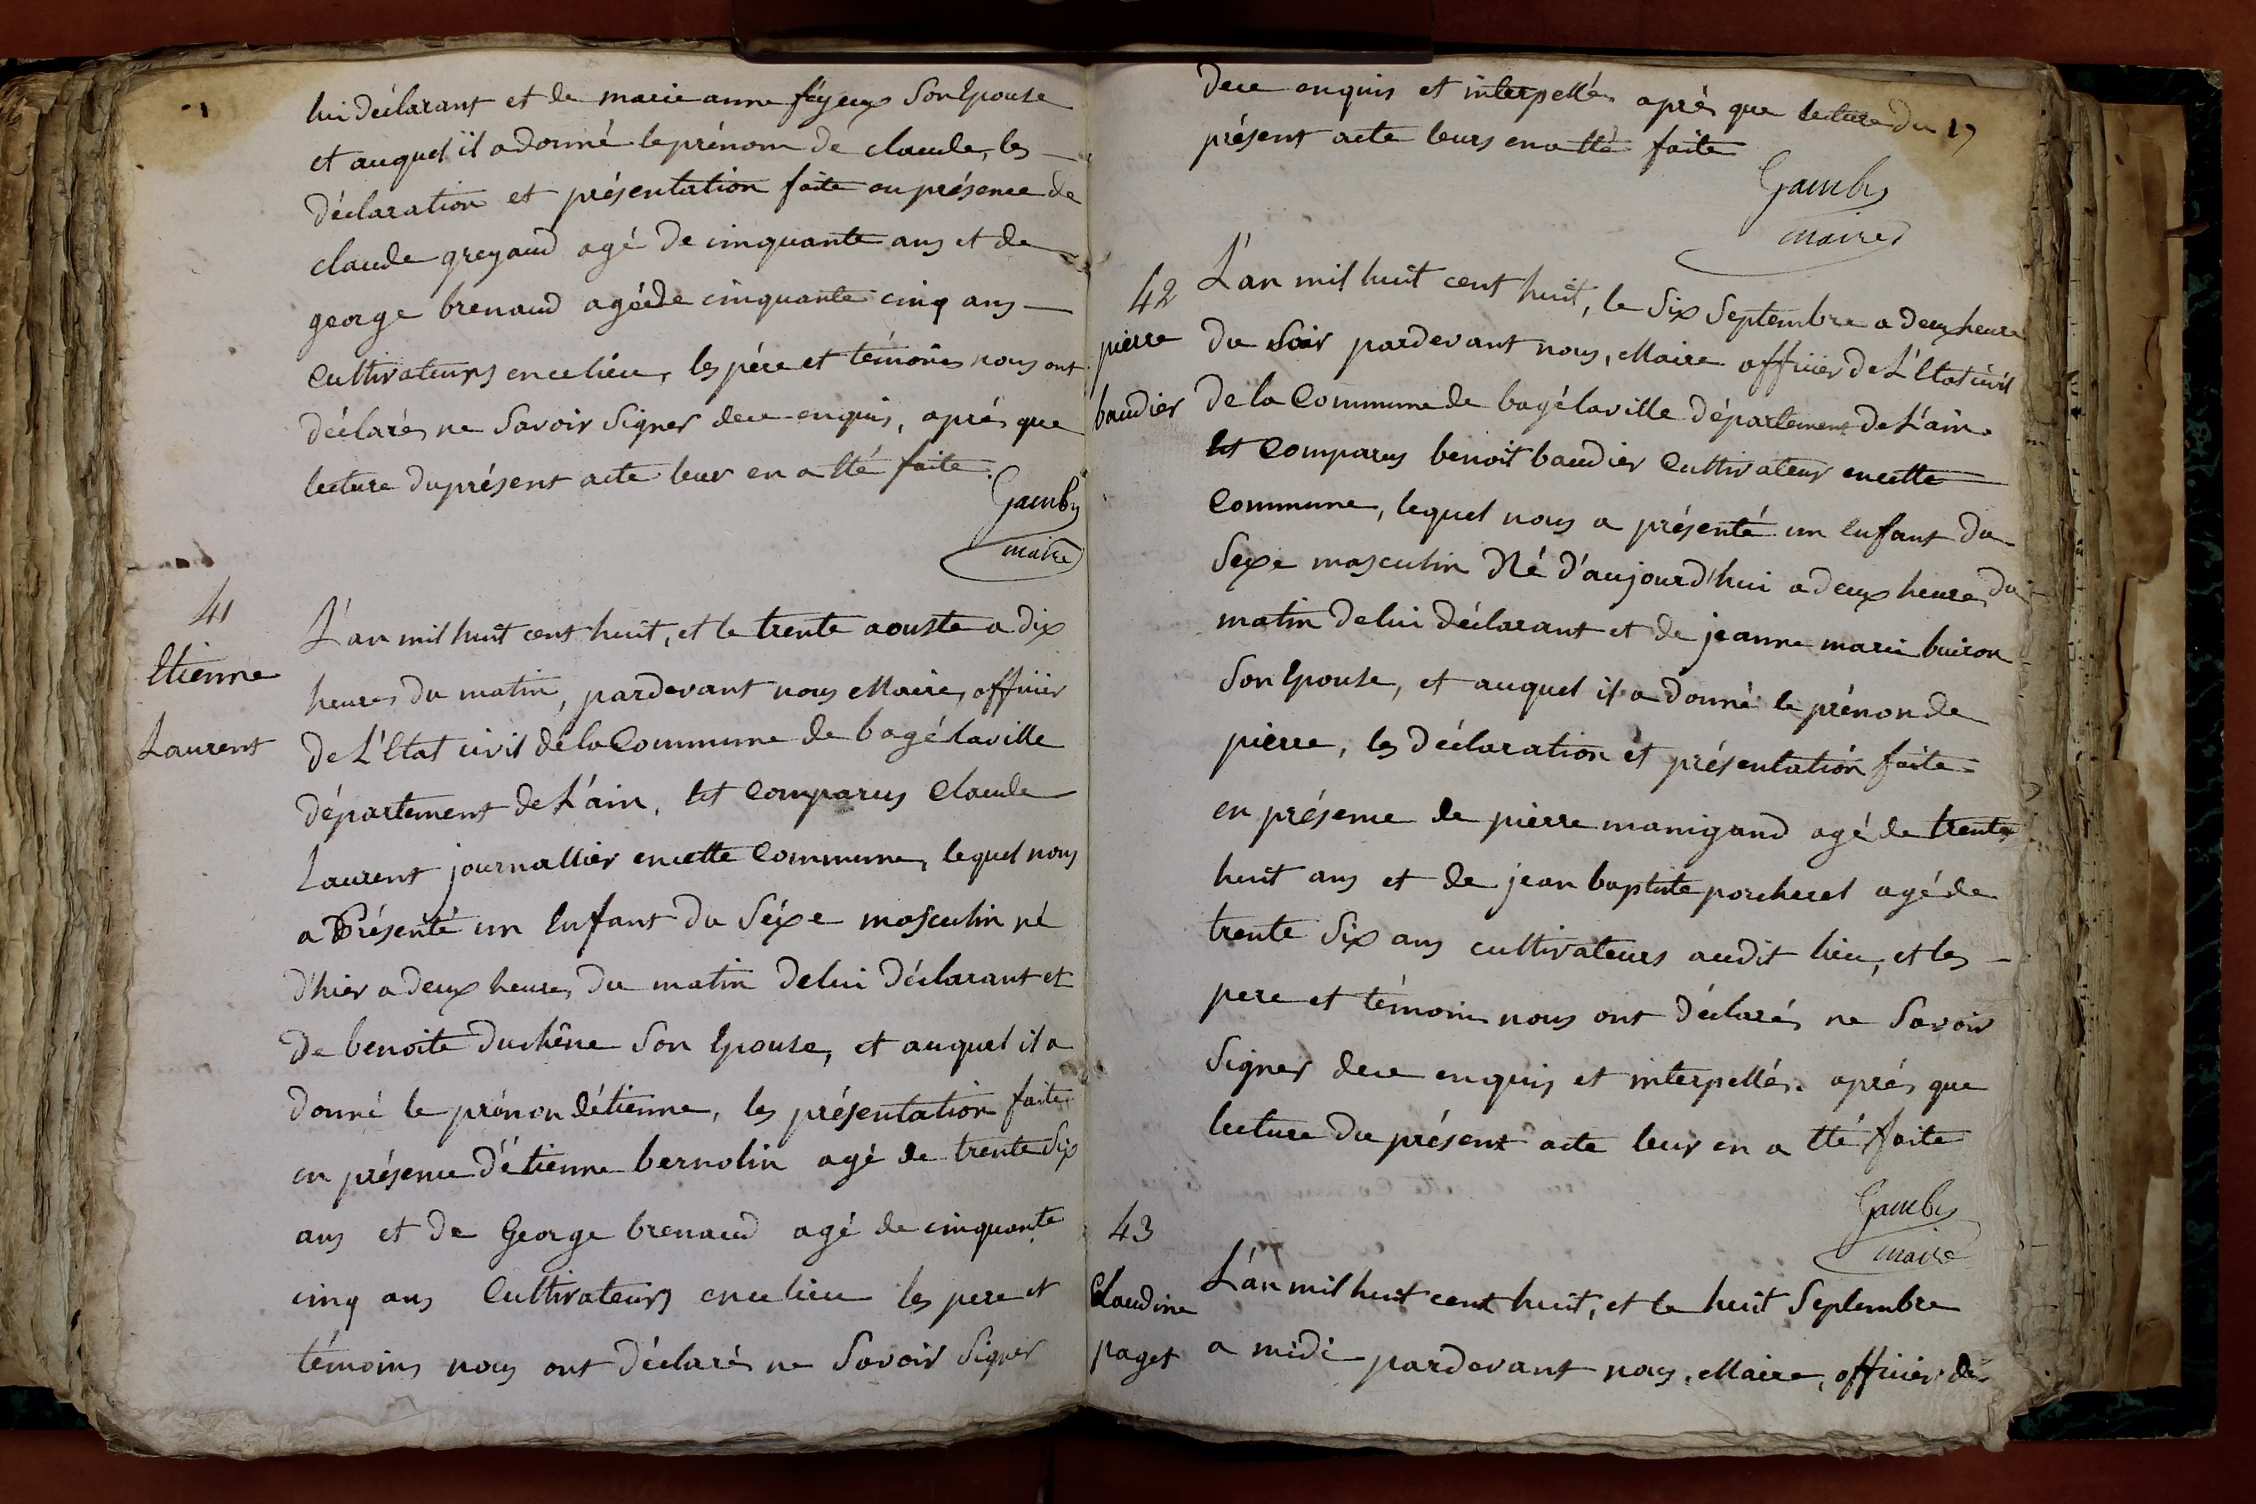 lui déclarant et de marie anne féyeux Son Epouse
et auquel il a donné le prénom de claude, les
déclaration et présentation faite en présence de
claude greyaud agé de cinquante ans et de
george brenaud agée de cinquante cinq ans
Cultivateurs en ce lieu, les pére et témoins nous ont
déclarés ne Savoir Signer de ce enquis, aprés que
lecture du présent acte leur en a Eté faite.
Gamby
maire
41
Etienne
Laurent
L'an mil huit cent huit, et le trente aouste a dix
heures du matin, pardevant nous Maire, officier
de L'Etat civil de la Commune de bagé laville
département de L'ain, Est Comparus Claude
Laurent journallier en cette Commune, lequel nous
a Présenté un Enfant du Séxe masculin né
d'hier a deux heures du matin de lui déclarant et
de benoite duchêne Son Epouse, et auquel il a
donné le prénon détienne, les présentation faite
en présence d'étienne bernolin agé de trente Six
ans et de George brenaud agé de cinquante
cinq ans Cultivateurs en ce lieu les pere et
témoins nous ont déclarés ne Savoir Signer
de ce enquis et interpellés aprés que lecture du
présent acte leurs en a Eté faite
Gamby
maire
42
pierre
baudier
L'an mil huit cent huit, le Six Septembre a deux heure
du Soir pardevant nous, Maire officier de L'Etat civil
de la Commune de bagé laville département de L'ain.
Est Comparus benoit baudier Cultivateur en cette
Commune, lequel nous a présenté un Enfant du
Sexe masculin Né d'aujourd'hui a deux heures du
matin de lui déclarant et de jeanne marie buiron
Son Epouse, et auquel il a donné le prénon de
pierre, les déclaration et présentation faite
en présence de pierre manigand agé de trente
huit ans et de jean baptiste porcheret agé de
trente Six ans cultivateurs audit lieu, et les
pere et témoins nous ont déclarés ne Savoir
Signer de ce enquis et interpellés. aprés que
lecture du présent acte leur en a Eté faite
Gamby
maire
43
Claudine
paget
L'an mil huit cent huit, et le huit Septembre
a midi pardevant nous, Maire, officier de